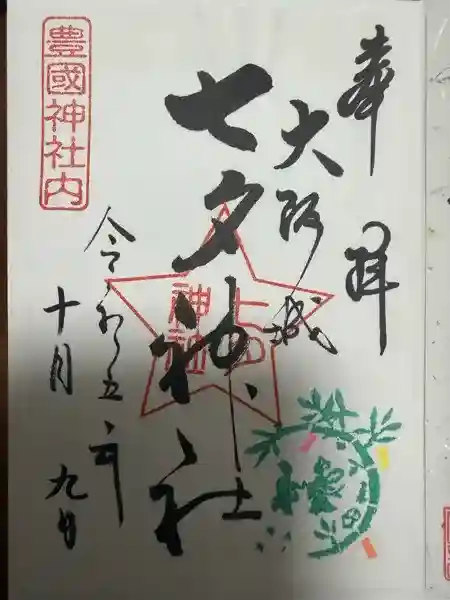 奉拝
大阪城
七夕神社
七夕
神社
豊國神社内
令和五年
十月九日